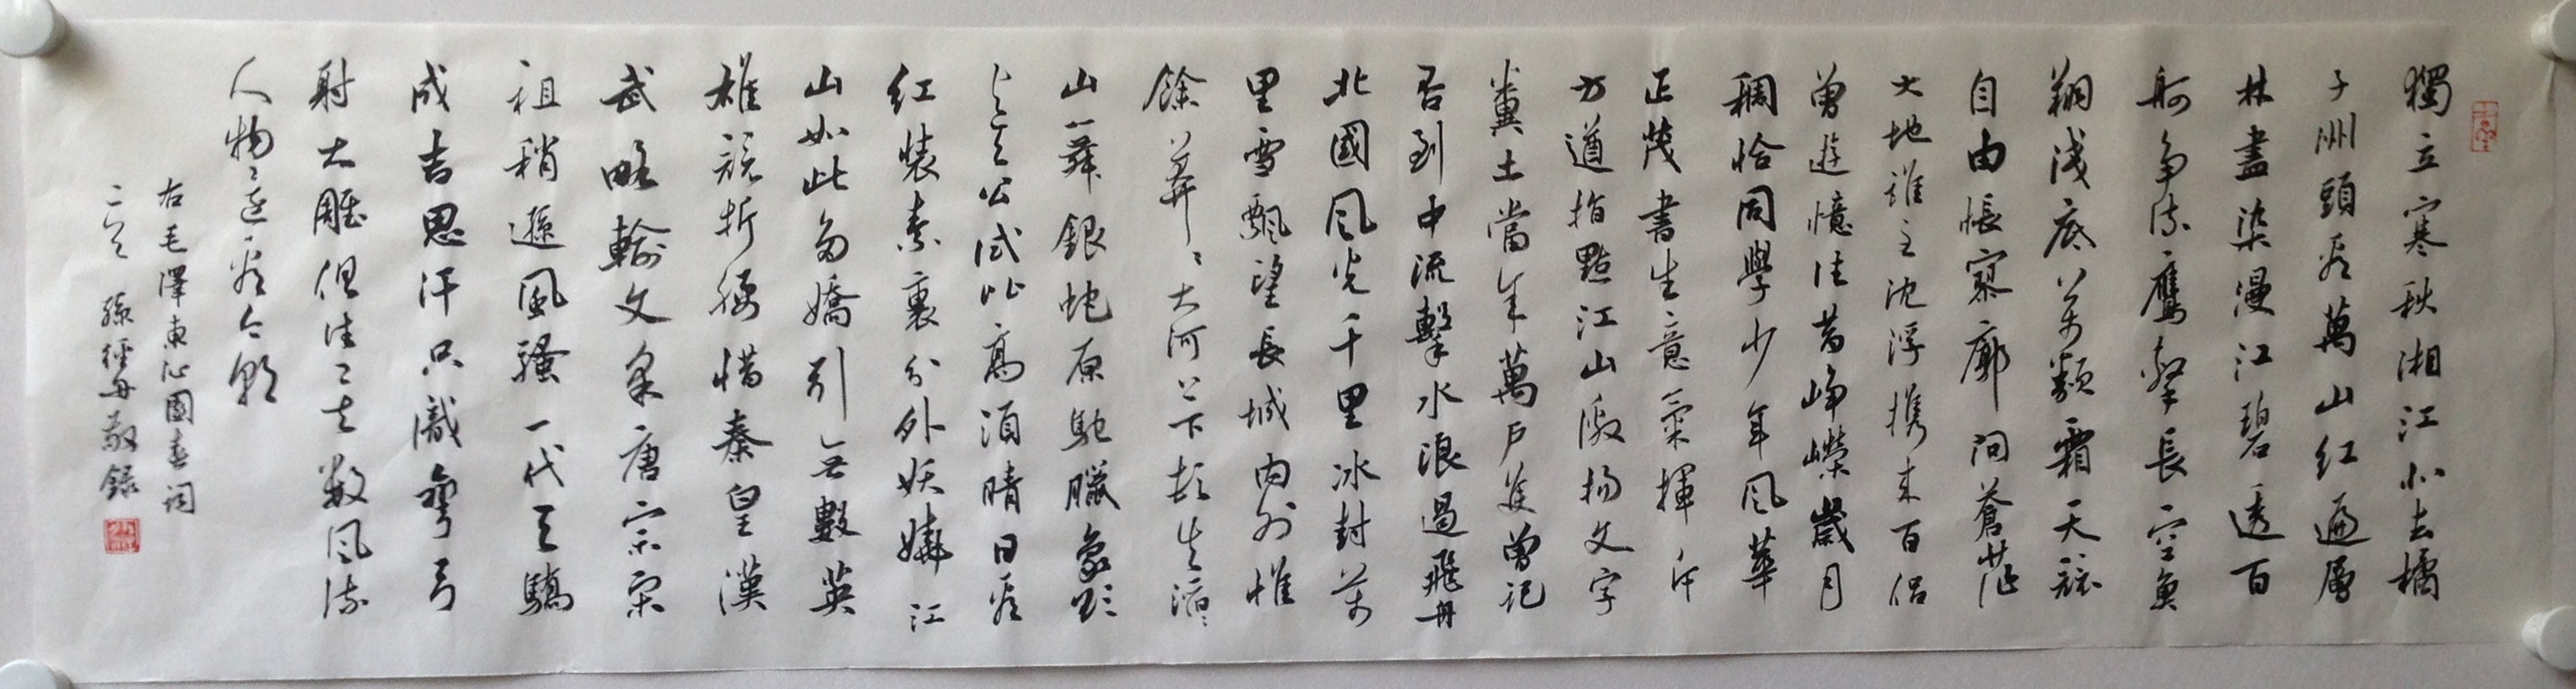 獨立寒秋湘江北去橘
子洲頭看萬山紅遍層
林盡染漫江碧透百
舸争流鷹擊長空魚
翔淺底萬類霜天競
自由悵寥廓问蒼茫
大地誰主沈浮携来百侣
曾遊憶往昔崢嶸歲月
稠恰同學少年風華
正茂書生意氣揮斥
方遒指點江山激扬文字
糞土當年萬户侯曾记
否到中流擊水浪遏飛舟
北國風光千里冰封萬
里雪飄望長城内外惟
餘莽々大河上下頓失滔々
山舞銀蛇原馳臘象欲
与天公试比高須晴日看
红裝素裹分外妖嬈江
山如此多嬌引無數英
雄競折腰惜秦皇漢
武略輸文采唐宗宋
祖稍遜風騷一代天驕
成吉思汗只識彎弓
射大雕俱往々矣数風流
人物々還看今朝
右毛澤東沁園春词
孫經舟敬録